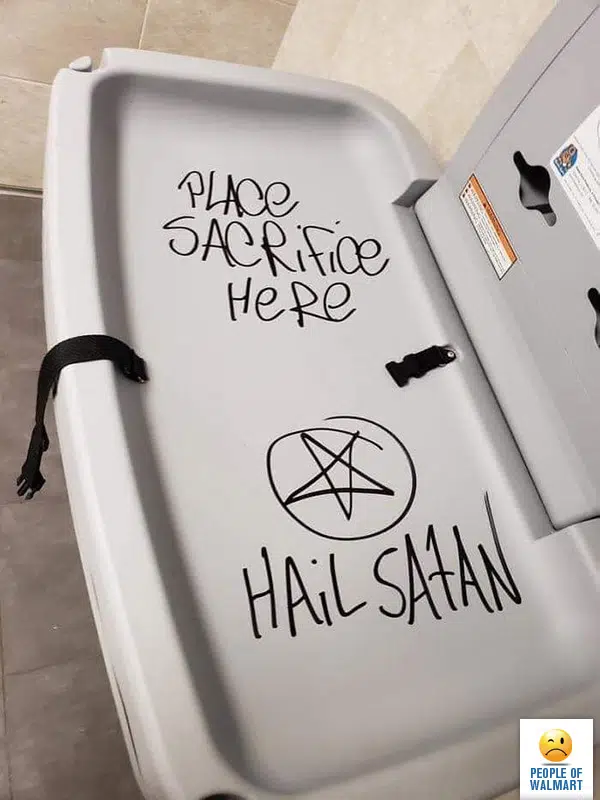 PLACE
SACRiFiCE
HERE
HAiL SATAN
PEOPLE OF
WALMART